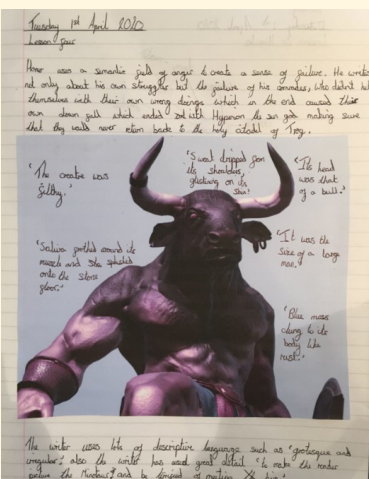 Tuesday 1st April 2020
Lesson four
Homer uses a semantic field of anger to create a sense of failure. He writes
not only about his own struggles but the failure of his comrades, who didn't help
themselves with their own wrong doings which in the end caused their
own down fall which ended with Hyperion the sun god making sure
that they would never return back to the holy citadel of Troy.
'The creature was
filthy.'
'Sweat dripped from
its shoulders,
glistening on its
skin.'
'Its head
was that
of a bull.'
'Saliva frothed around its
muzzle and
onto the stone
floor.'
'It was the
size of a large
man.'
'Blue moss
clung to its
body like
rust.'
The writer uses lots of descriptive language such as 'grotesque and
irregular' also the writer has used great detail to make the reader
picture the Minotaur and be of meeting him.